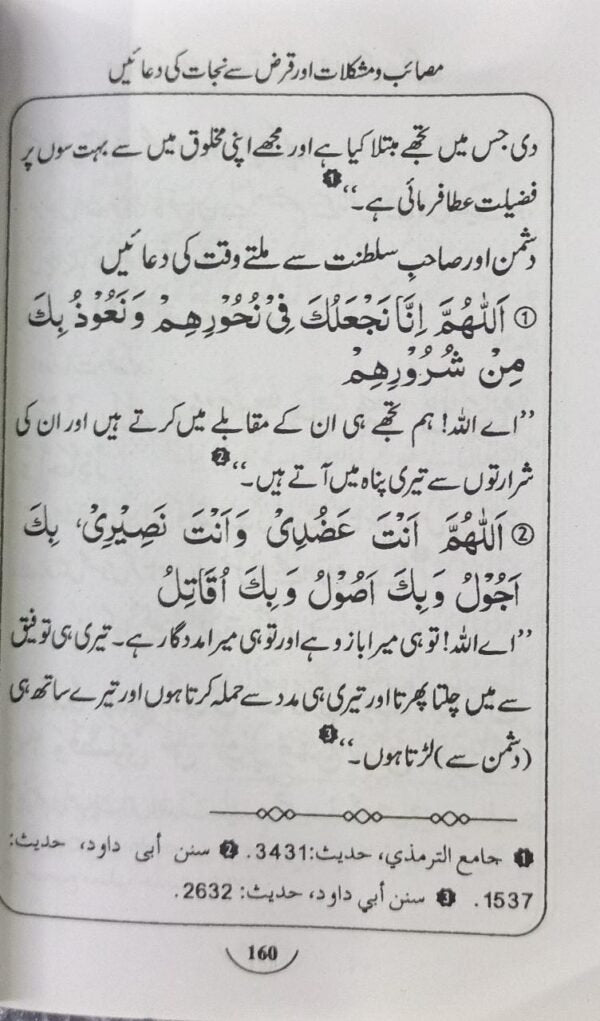 مصائب و مشکلات اور قرض سے نجات کی دعائیں
دی جس میں تجھے مبتلا کیا ہے اور مجھے اپنی مخلوق میں سے بہت سوں پر
فضیلت عطا فرمائی ہے۔‘‘ ❶
دشمن اور صاحبِ سلطنت سے ملتے وقت کی دعائیں
① اَللّٰهُمَّ اِنَّا نَجْعَلُكَ فِيْ نُحُوْرِهِمْ وَنَعُوْذُ بِكَ
مِنْ شُرُوْرِهِمْ
’’اے اللہ! ہم تجھے ہی ان کے مقابلے میں کرتے ہیں اور ان کی
شرارتوں سے تیری پناہ میں آتے ہیں۔‘‘ ❷
② اَللّٰهُمَّ اَنْتَ عَضُدِيْ وَاَنْتَ نَصِيْرِيْ، بِكَ
اَجُوْلُ وَبِكَ اَصُوْلُ وَبِكَ اُقَاتِلُ
’’اے اللہ! تو ہی میرا بازو ہے اور تو ہی میرا مددگار ہے۔ تیری ہی توفیق
سے میں چلتا پھرتا اور تیری ہی مدد سے حملہ کرتا ہوں اور تیرے ساتھ ہی
(دشمن سے) لڑتا ہوں۔‘‘ ❸
❶ جامع الترمذي، حديث:3431. ❷ سنن أبي داود، حديث:
1537. ❸ سنن أبي داود، حديث: 2632.
160